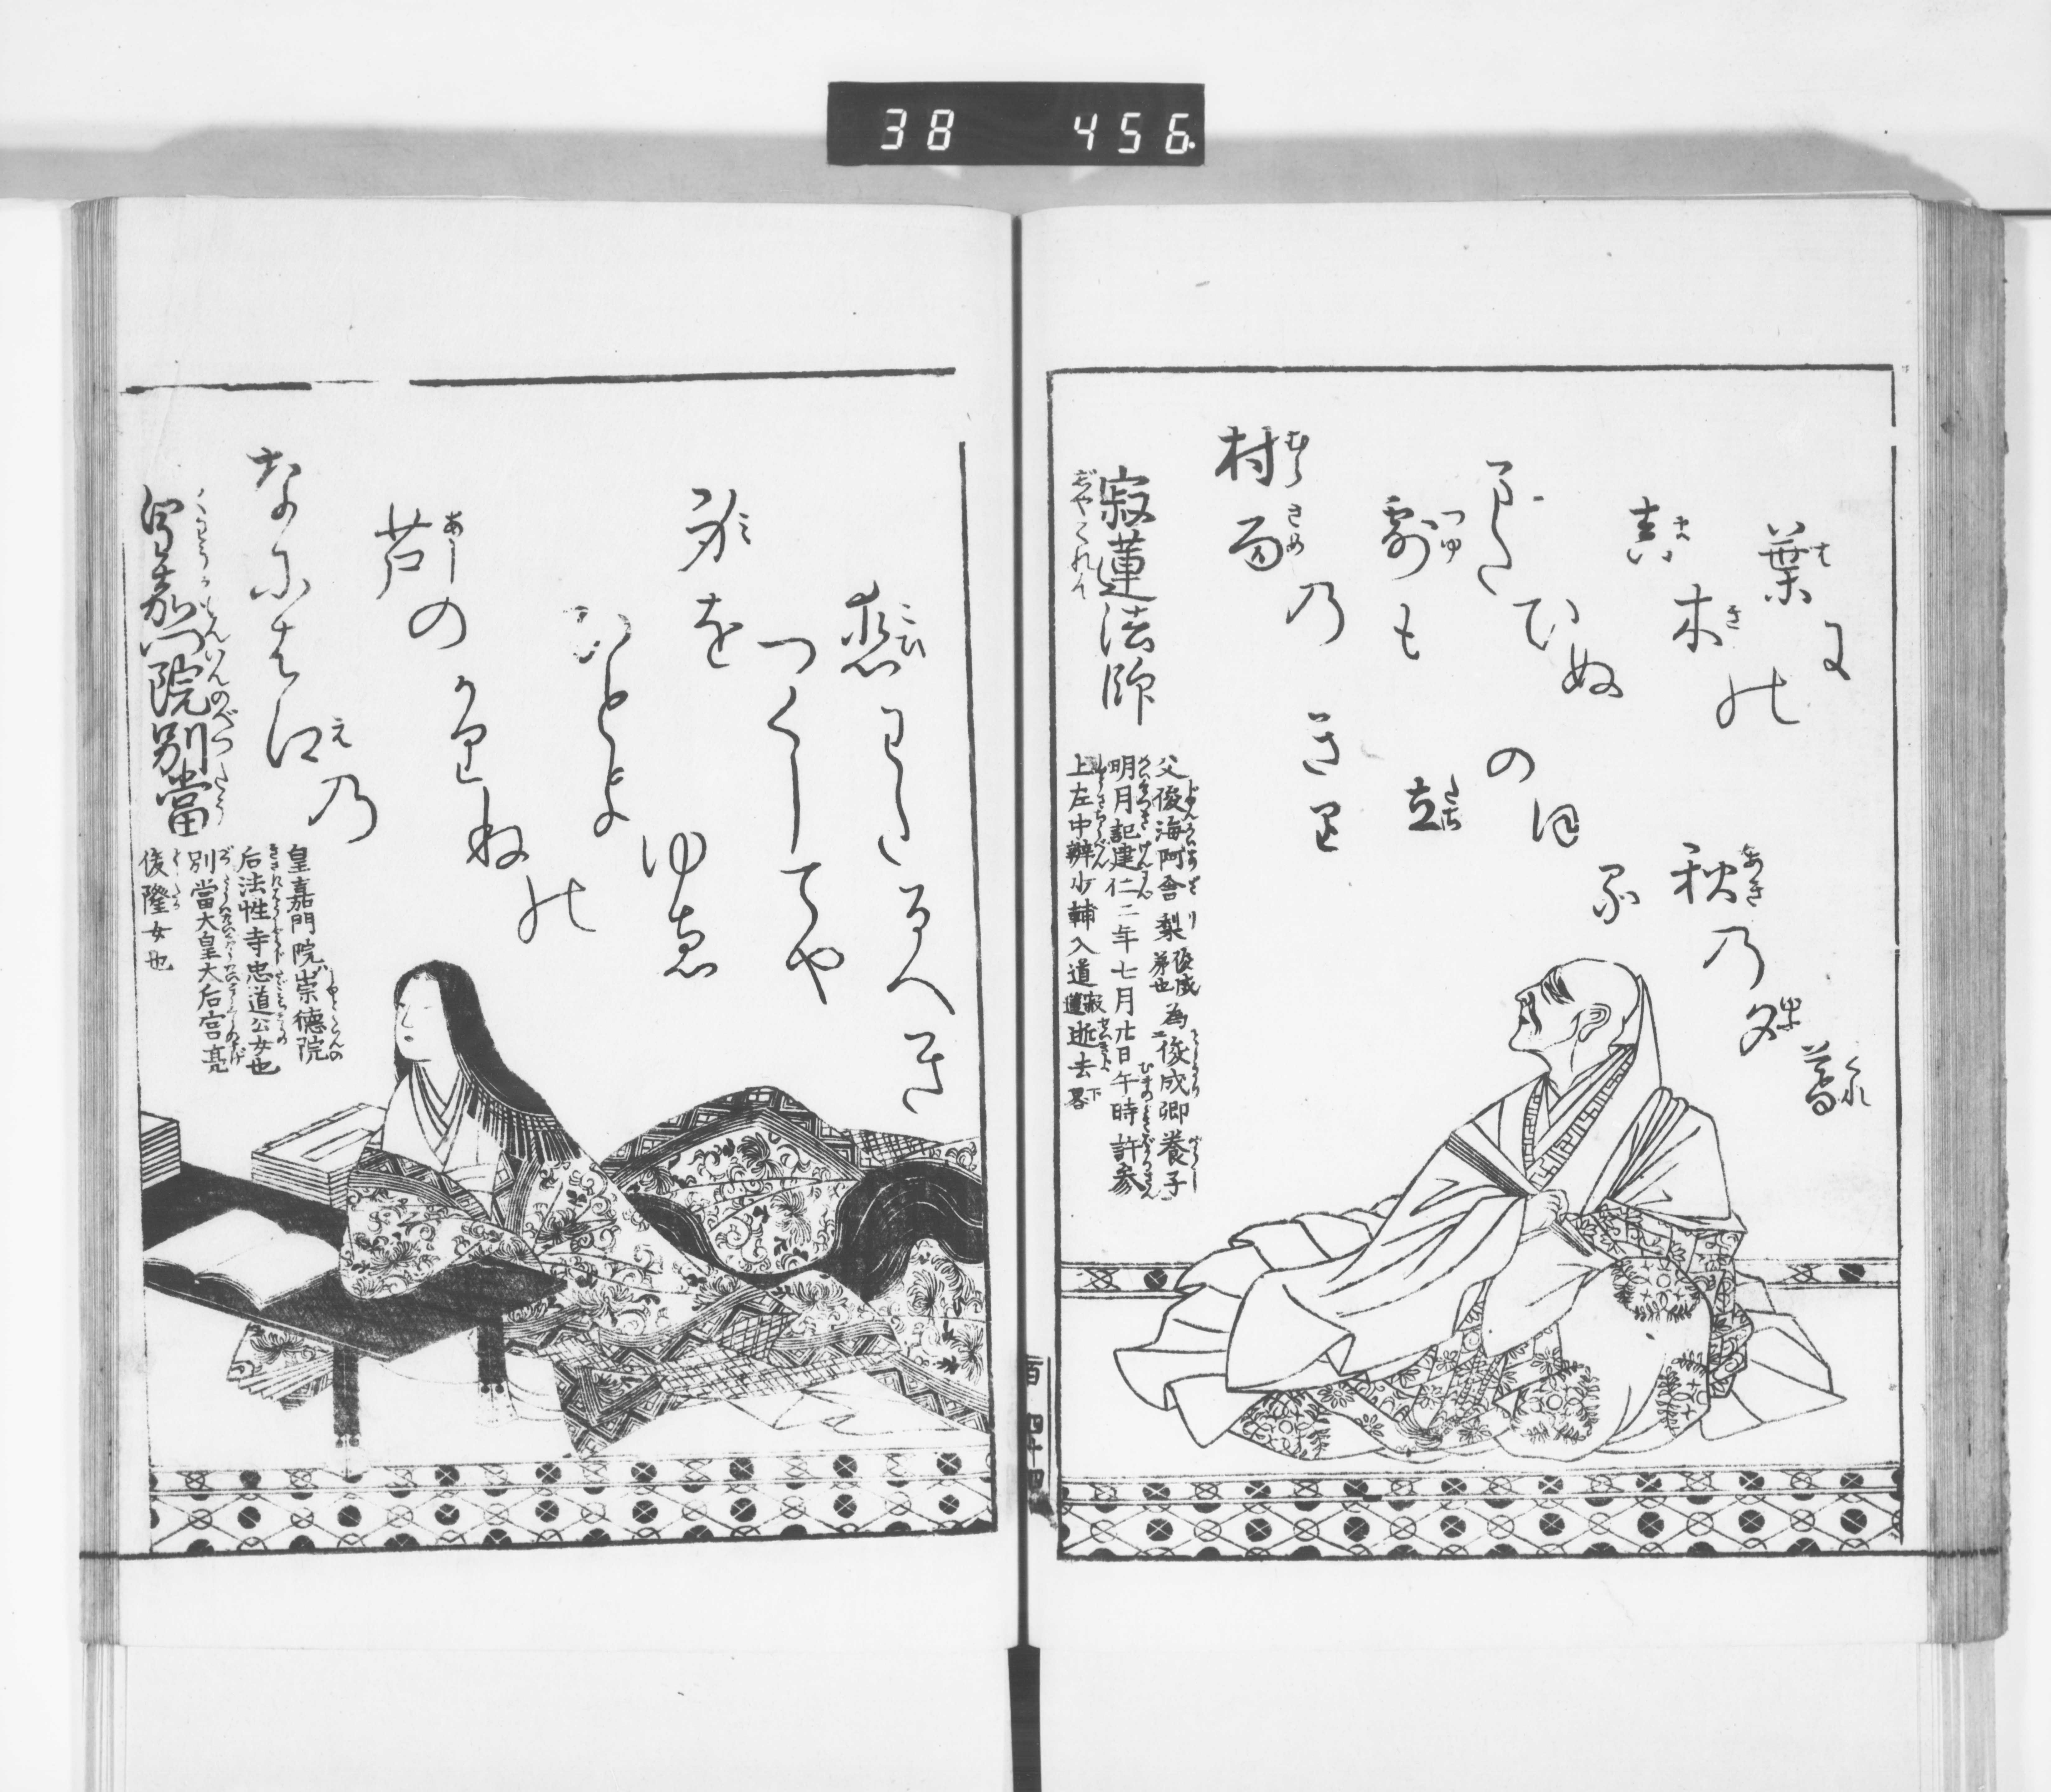 38 456
寂蓮法師
じやくれん
父俊海阿舎梨俊成弟也為俊成卿養子
明月記建仁二年七月廿日午時許参
上左中辨少輔入道寂蓮逝去下畧
村雨の
露も
まだ
ひぬ
真木の
葉に
きり
立
のほる
秋の
夕暮
皇嘉門院別當
皇嘉門院崇徳院
后法性寺忠道公女也
別當大皇大后宮亮
俊隆女也
なにはえの
芦の
かりねの
ひとよ
ゆゑ
身を
つくしてや
恋わたるへき
百 四十四